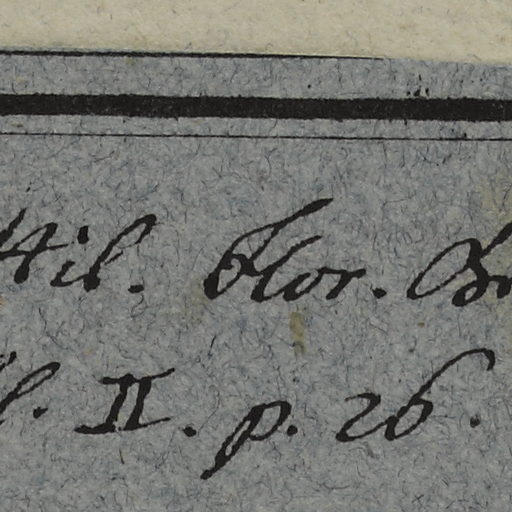 Hil. Flor. Br
l. II. p. 26.